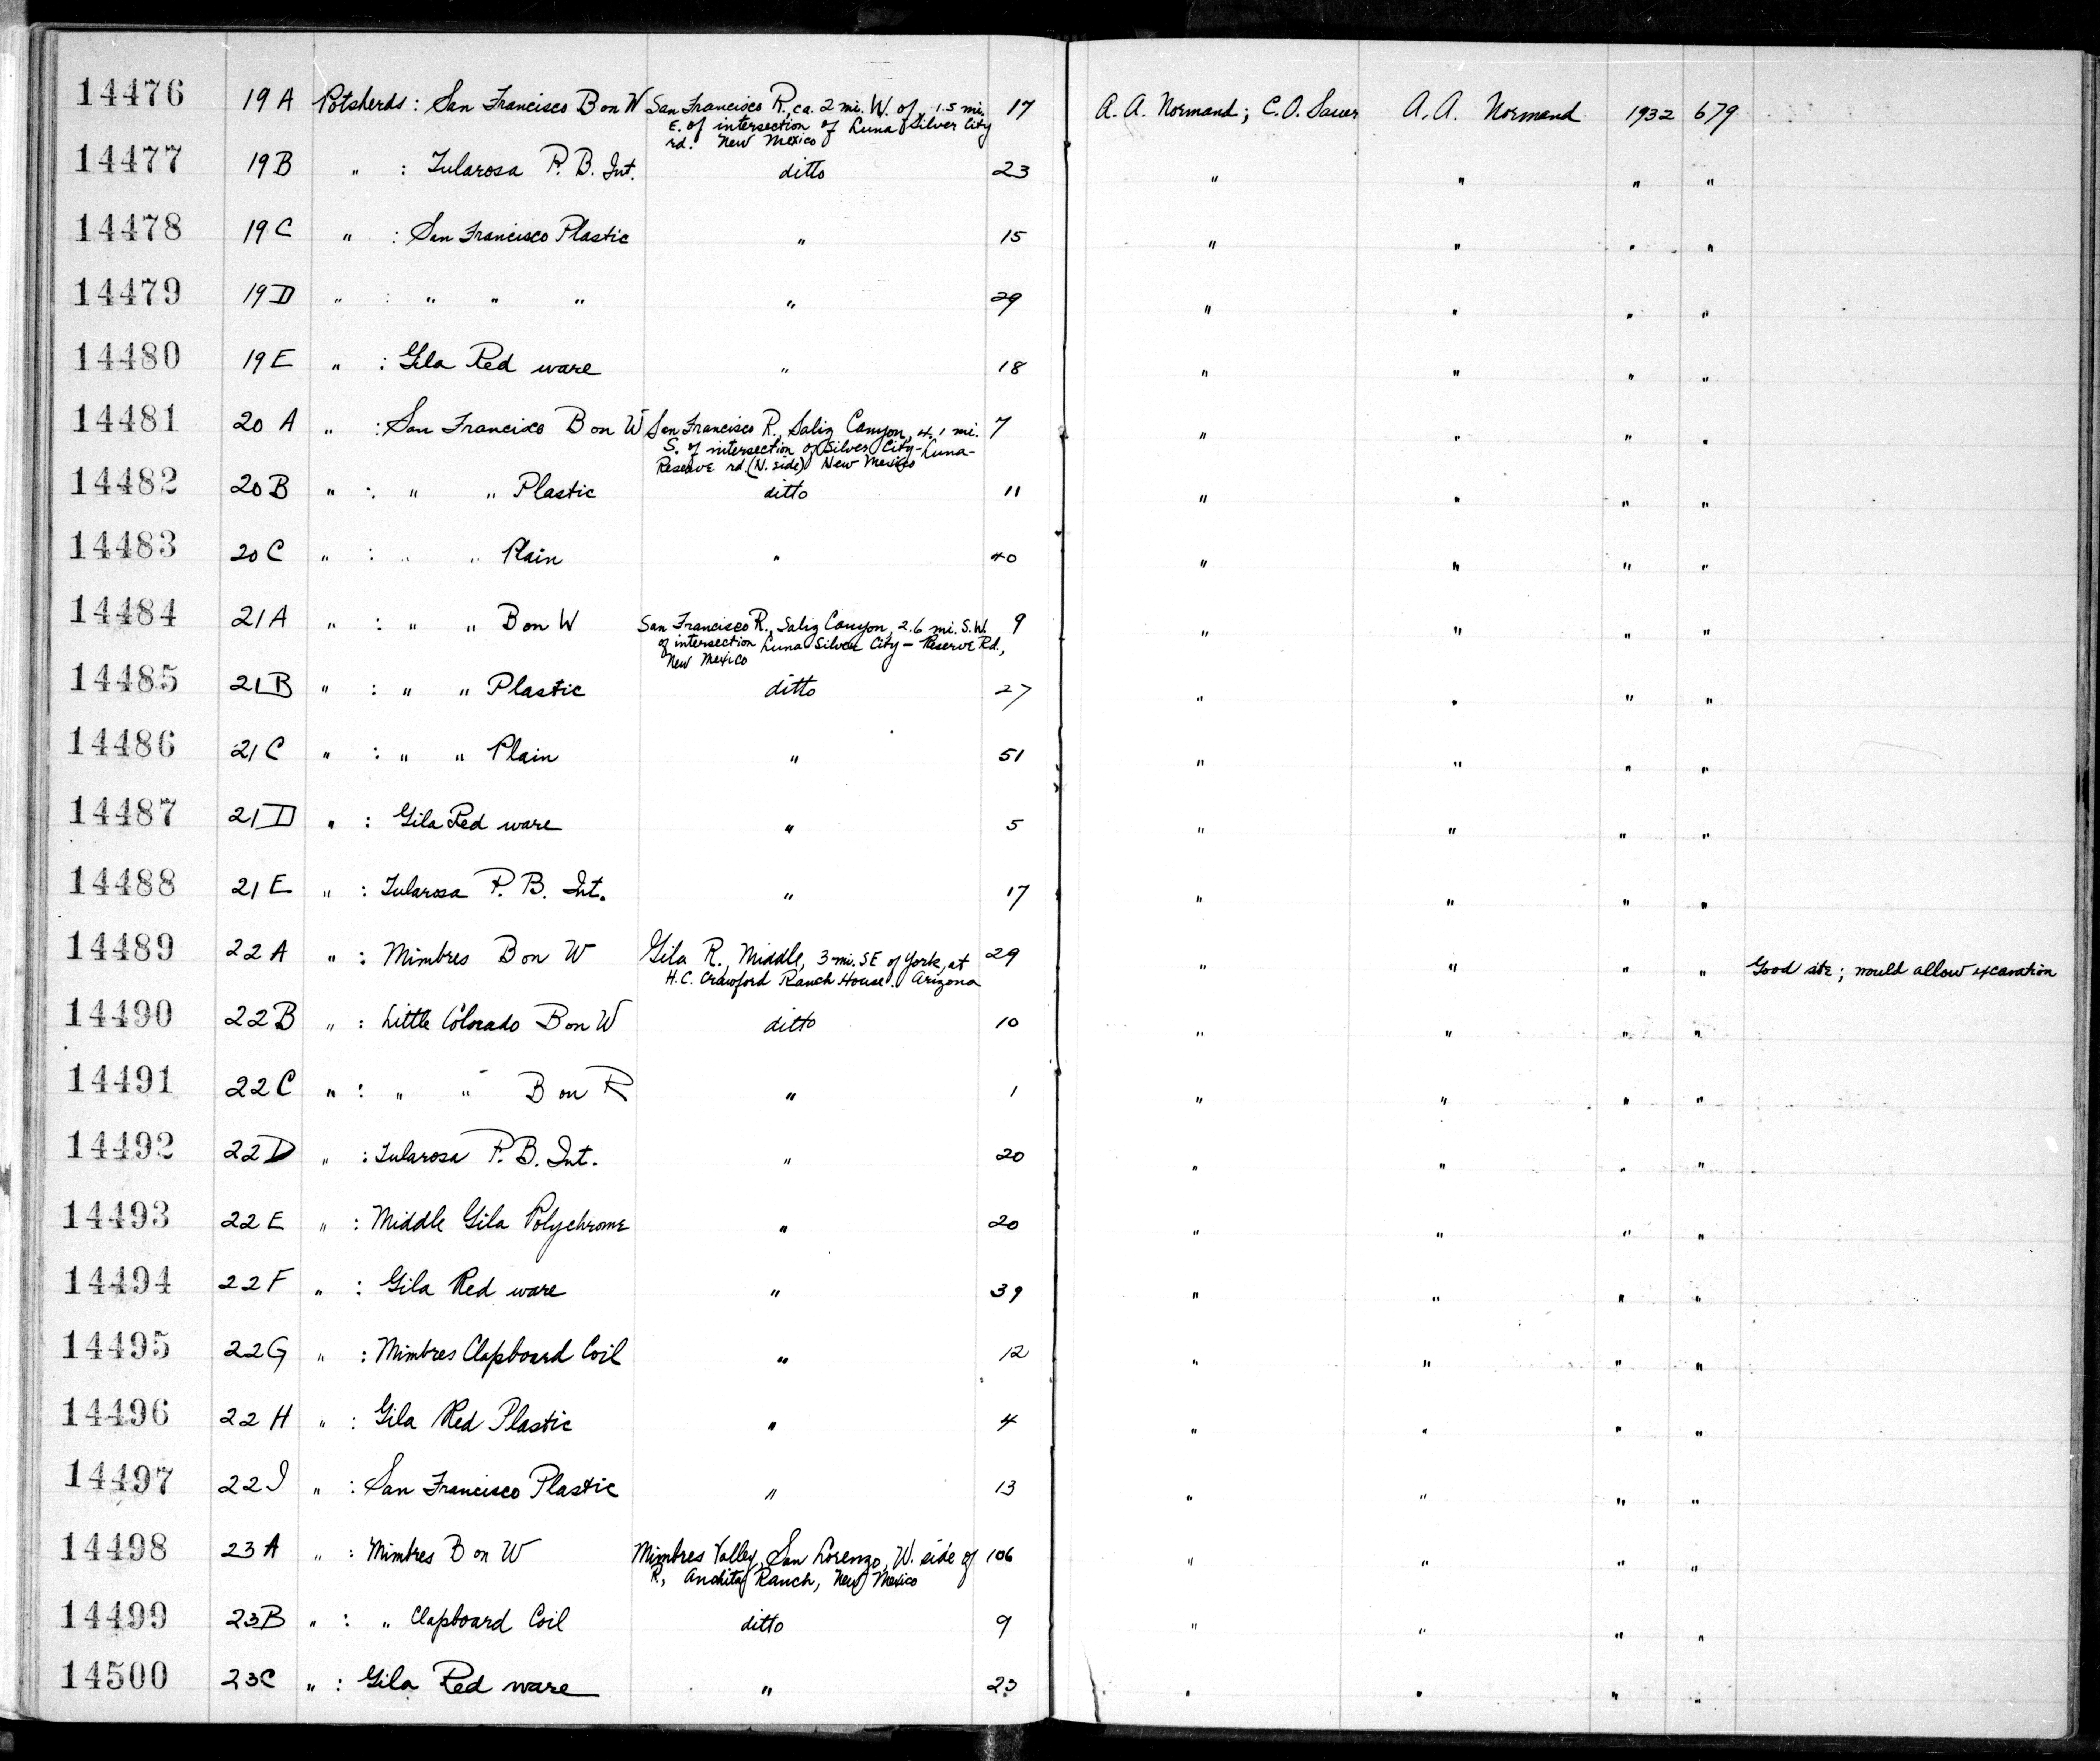 14476 19A Potsherds : San Francisco B on W San Francisco R, ca. 2 mi. W. of, 1.5 mi. 17 A. A. Normand; C.O. Sauer A. A. Normand 1932 679
E. of intersection of Luna Silver City
rd. New Mexico
14477 19B " : Tularosa P. B. Int. ditto 23 " " " "
14478 19C " : San Francisco Plastic " 15 " " " "
14479 19D " : " " " " 29 " " " "
14480 19E " : Gila Red ware " 18 " " " "
14481 20 A " : San Francisco B on W San Francisco R., Saliz Canyon, 4.1 mi. 7 " " " "
S. of intersection of Silver City-Luna-
Reserve rd. (N. side) New Mexico
14482 20B " : " " Plastic ditto 11 " " " "
14483 20C " : " " Plain " 40 " " " "
14484 21A " : " " B on W San Francisco R., Saliz Canyon, 2.6 mi. S.W. 9 " " " "
of intersection Luna Silver City - Reserve Rd.,
New Mexico
14485 21B " : " " Plastic ditto 27 " " " "
14486 21C " : " " Plain " 51 " " " "
14487 21D " : Gila Red ware " 5 " " " "
14488 21E " : Tularosa P. B. Int. " 17 " " " "
14489 22A " : Mimbres B on W Gila R., Middle, 3 mi. SE of York, at 29 " " " " Good site; would allow excavation
H.C. Crawford Ranch House. Arizona
14490 22B " : Little Colorado B on W ditto 10 " " " "
14491 22C " : " " B on R " 1 " " " "
14492 22D " : Tularosa P. B. Int. " 20 " " " "
14493 22E " : Middle Gila Polychrome " 20 " " " "
14494 22F " : Gila Red ware " 39 " " " "
14495 22G " : Mimbres Clapboard Coil " 12 " " " "
14496 22H " : Gila Red Plastic " 4 " " " "
14497 22I " : San Francisco Plastic " 13 " " " "
14498 23A " : Mimbres B on W Mimbres Valley, San Lorenzo, W. side of 106 " " " "
R, Ranch, New Mexico
14499 23B " : " Clapboard Coil ditto 9 " " " "
14500 23C " : Gila Red ware " 23 " " " "